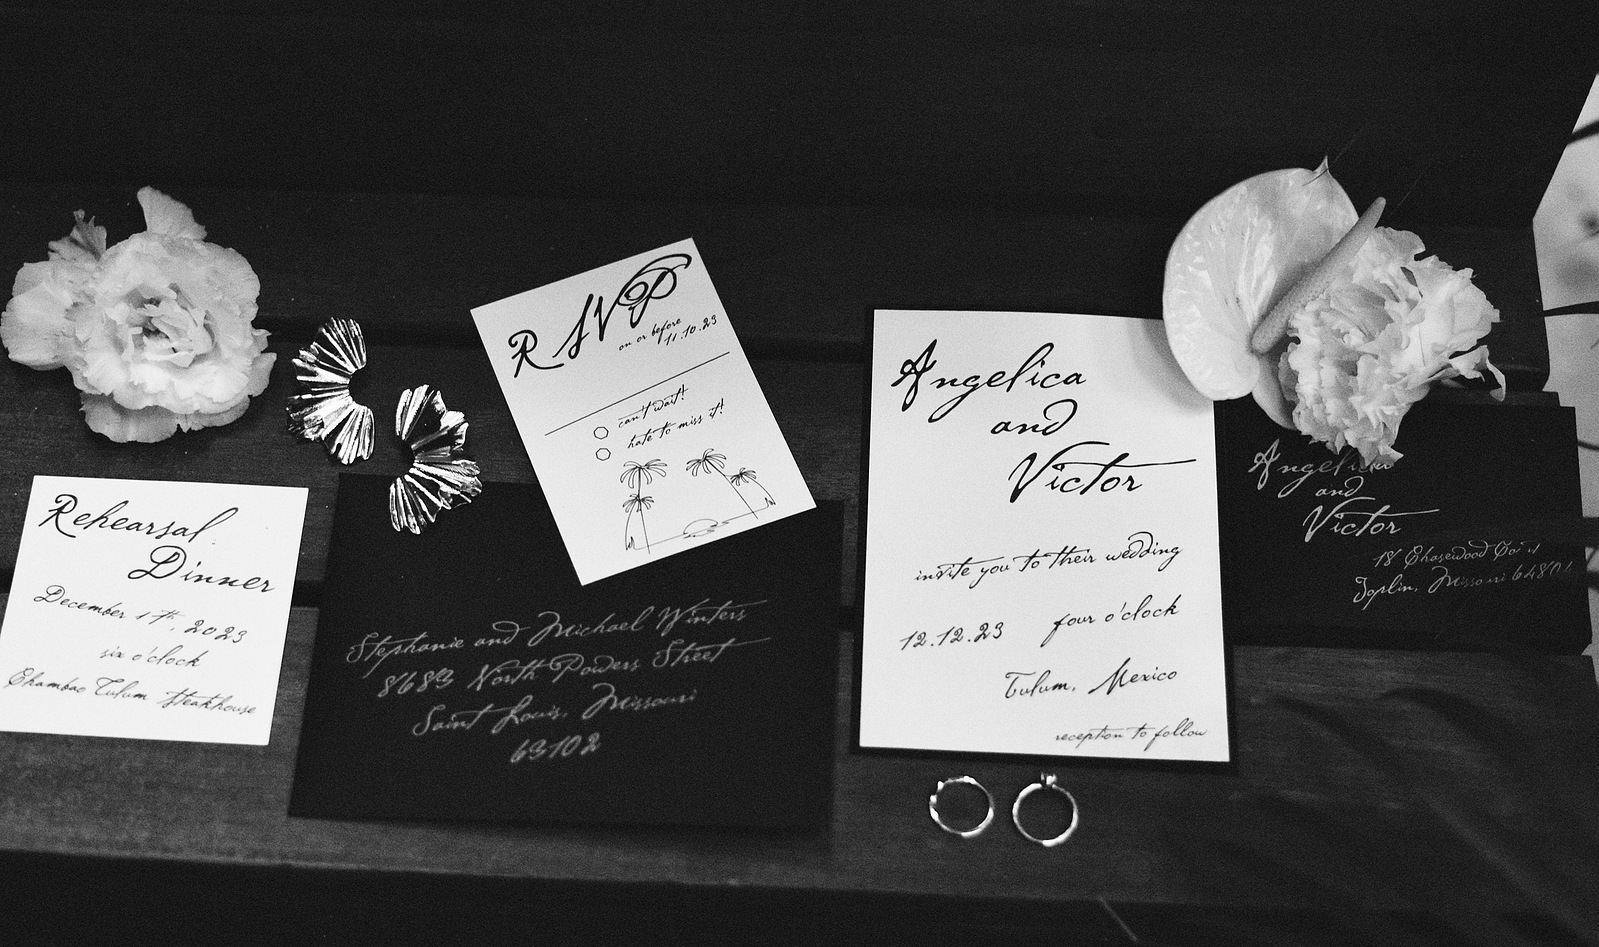 Rehearsal
Dinner
December 1th, 2023
six o'clock
Chambao Tulum Steakhouse
RSVP
on or before
11.10.23
can't wait!
hate to miss it!
Stephanie and Michael Winters
8683 North Powers Street
Saint Louis, Missouri
63102
Angelica
and
Victor
invite you to their wedding
12.12.23 four o'clock
Tulum, Mexico
reception to follow
Angelica
and
Victor
18 Chasewood Court
Joplin, Missouri 64801